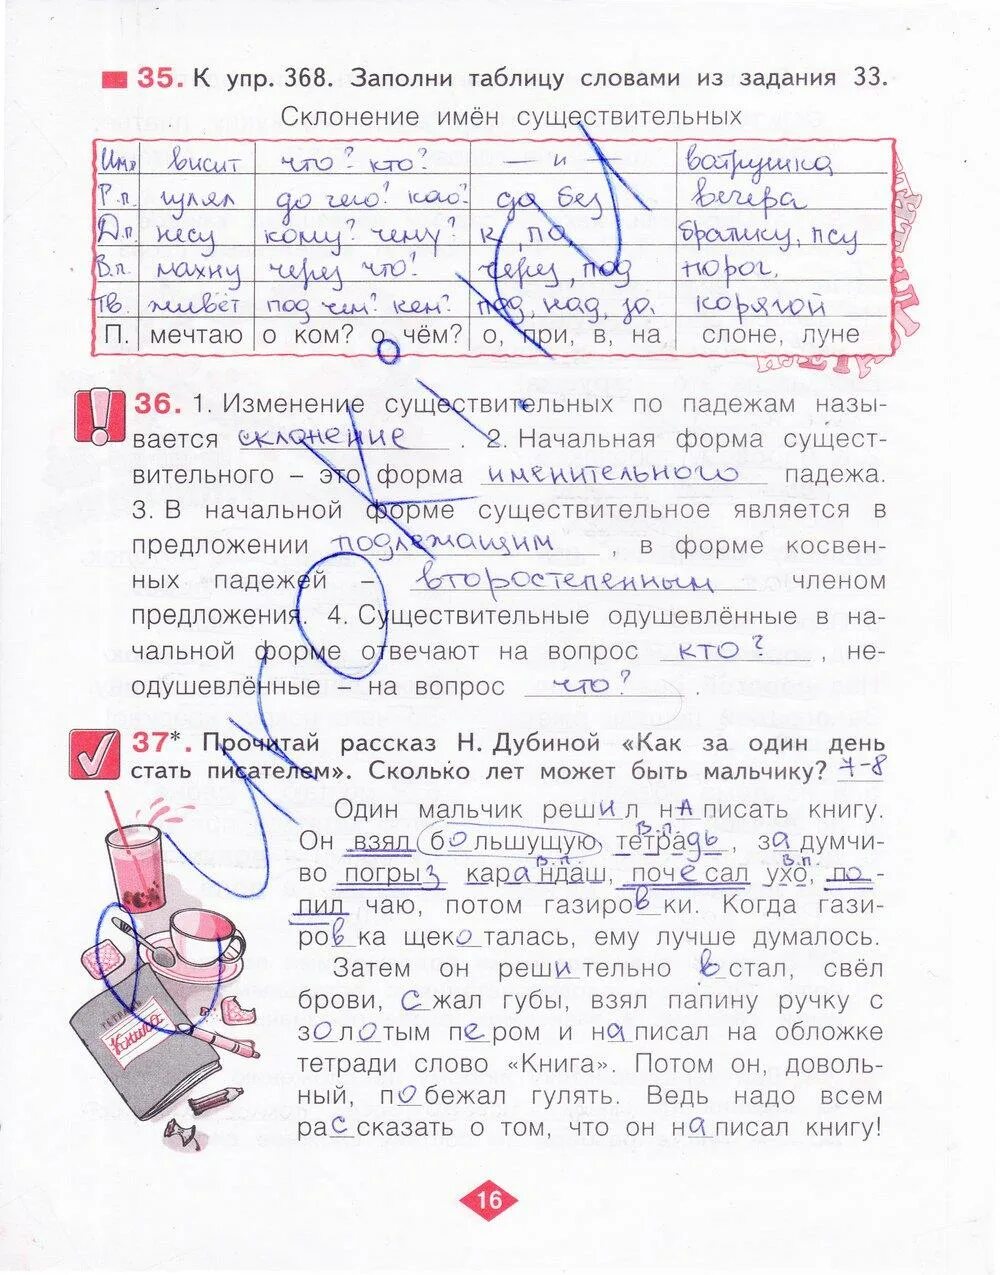 35. К упр. 368. Заполни таблицу словами из задания 33.
Склонение имён существительных
Им. висит что? кто? — и — ватрушка
Р.п. гулял до чего? како? до без вечера
Д.п. несу кому? чему? к, по, братику, псу
В.п. махну через что? через, под порог,
Тв. живёт под чем? кем? под, над, за. корягой
П. мечтаю о ком? о чём? о, при, в, на слоне, луне
36. 1. Изменение существительных по падежам назы-
вается склонение . 2. Начальная форма сущест-
вительного – это форма именительного падежа.
3. В начальной форме существительное является в
предложении подлежащим , в форме косвен-
ных падежей – второстепенным членом
предложения. 4. Существительные одушевлённые в на-
чальной форме отвечают на вопрос кто? , не-
одушевлённые – на вопрос что? .
37*. Прочитай рассказ Н. Дубиной «Как за один день
стать писателем». Сколько лет может быть мальчику? 7-8
Один мальчик решил написать книгу.
В.п.
Он взял большущую тетрадь, задумчи-
В.п. В.п.
во погрыз карандаш, почесал ухо, по-
пил чаю, потом газировки. Когда гази-
ровка щекоталась, ему лучше думалось.
Затем он решительно встал, свёл
брови, сжал губы, взял папину ручку с
золотым пером и написал на обложке
тетради слово «Книга». Потом он, доволь-
ный, побежал гулять. Ведь надо всем
рассказать о том, что он написал книгу!
ТЕТРАДЬ
Книга
16